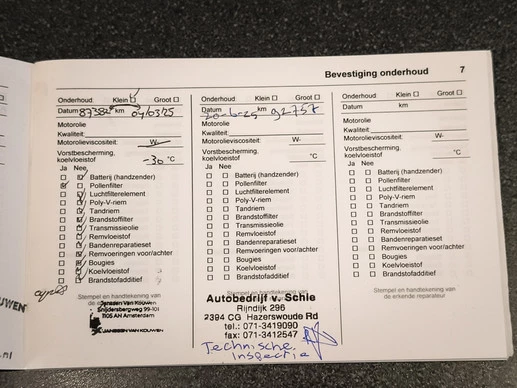 Bevestiging onderhoud 7
Onderhoud: Klein ☑ Groot ☐
Datum 87382 km 04/03/25
Motorolie
Kwaliteit:
Motorolieviscositeit: W-
Vorstbescherming, koelvloeistof -30 °C
Ja Nee
Batterij (handzender)
Pollenfilter
Luchtfilterelement
Poly-V-riem
Tandriem
Brandstoffilter
Transmissieolie
Remvloeistof
Bandenreparatieset
Remvoeringen voor/achter
Bougies
Koelvloeistof
Brandstofadditief
Stempel en handtekening van
Janssen Van Kouwen
Snijdersbergweg 99-101
1105 AN Amsterdam
JANSSEN VAN KOUWEN
Onderhoud: Klein ☐ Groot ☐
Datum km 92757
Motorolie
Kwaliteit:
Motorolieviscositeit: W-
Vorstbescherming, koelvloeistof °C
Ja Nee
Batterij (handzender)
Pollenfilter
Luchtfilterelement
Poly-V-riem
Tandriem
Brandstoffilter
Transmissieolie
Remvloeistof
Bandenreparatieset
Remvoeringen voor/achter
Bougies
Koelvloeistof
Brandstofadditief
Stempel en handtekening van
Autobedrijf v. Schie
Rijndijk 296
2394 CG Hazerswoude Rd
tel.: 071-3419090
fax: 071-3412547
Technische
Inspectie
Onderhoud: Klein ☐ Groot ☐
Datum km
Motorolie
Kwaliteit:
Motorolieviscositeit: W-
Vorstbescherming, koelvloeistof °C
Ja Nee
Batterij (handzender)
Pollenfilter
Luchtfilterelement
Poly-V-riem
Tandriem
Brandstoffilter
Transmissieolie
Remvloeistof
Bandenreparatieset
Remvoeringen voor/achter
Bougies
Koelvloeistof
Brandstofadditief
Stempel en handtekening van
de erkende reparateur
UWEN
.nl